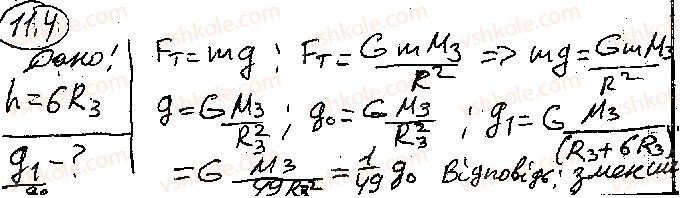 11.4
Дано:
h = 6R₃
g₁/g₀ - ?
Fт = mg ; Fт = G mM₃/R² => mg = GmM₃/R²
g = G M₃/R₃² ; g₀ = G M₃/R₃² ; g₁ = G M₃/(R₃ + 6R₃)
= G M₃/49R₃² = 1/49 g₀ Відповідь: зменши